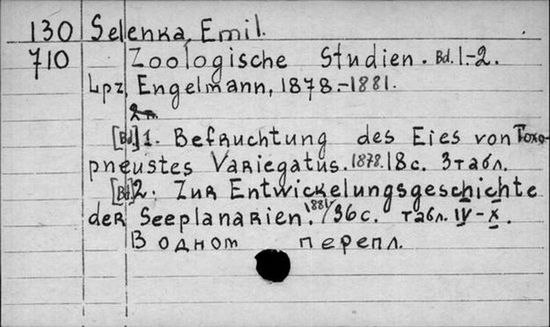 130 Selenka, Emil.
710 Zoologische Studien. Bd. 1.-2.
Lpz, Engelmann, 1878.-1881.
[Bd.]1. Befruchtung des Eies von Toxo-
pneustes Variegatus. 1878. 18 с. 3 табл.
[Bd.]2. Zur Entwickelungsgeschichte
der Seeplanarien. 1881/ 36 с. табл. IV-X.
В одном перепл.